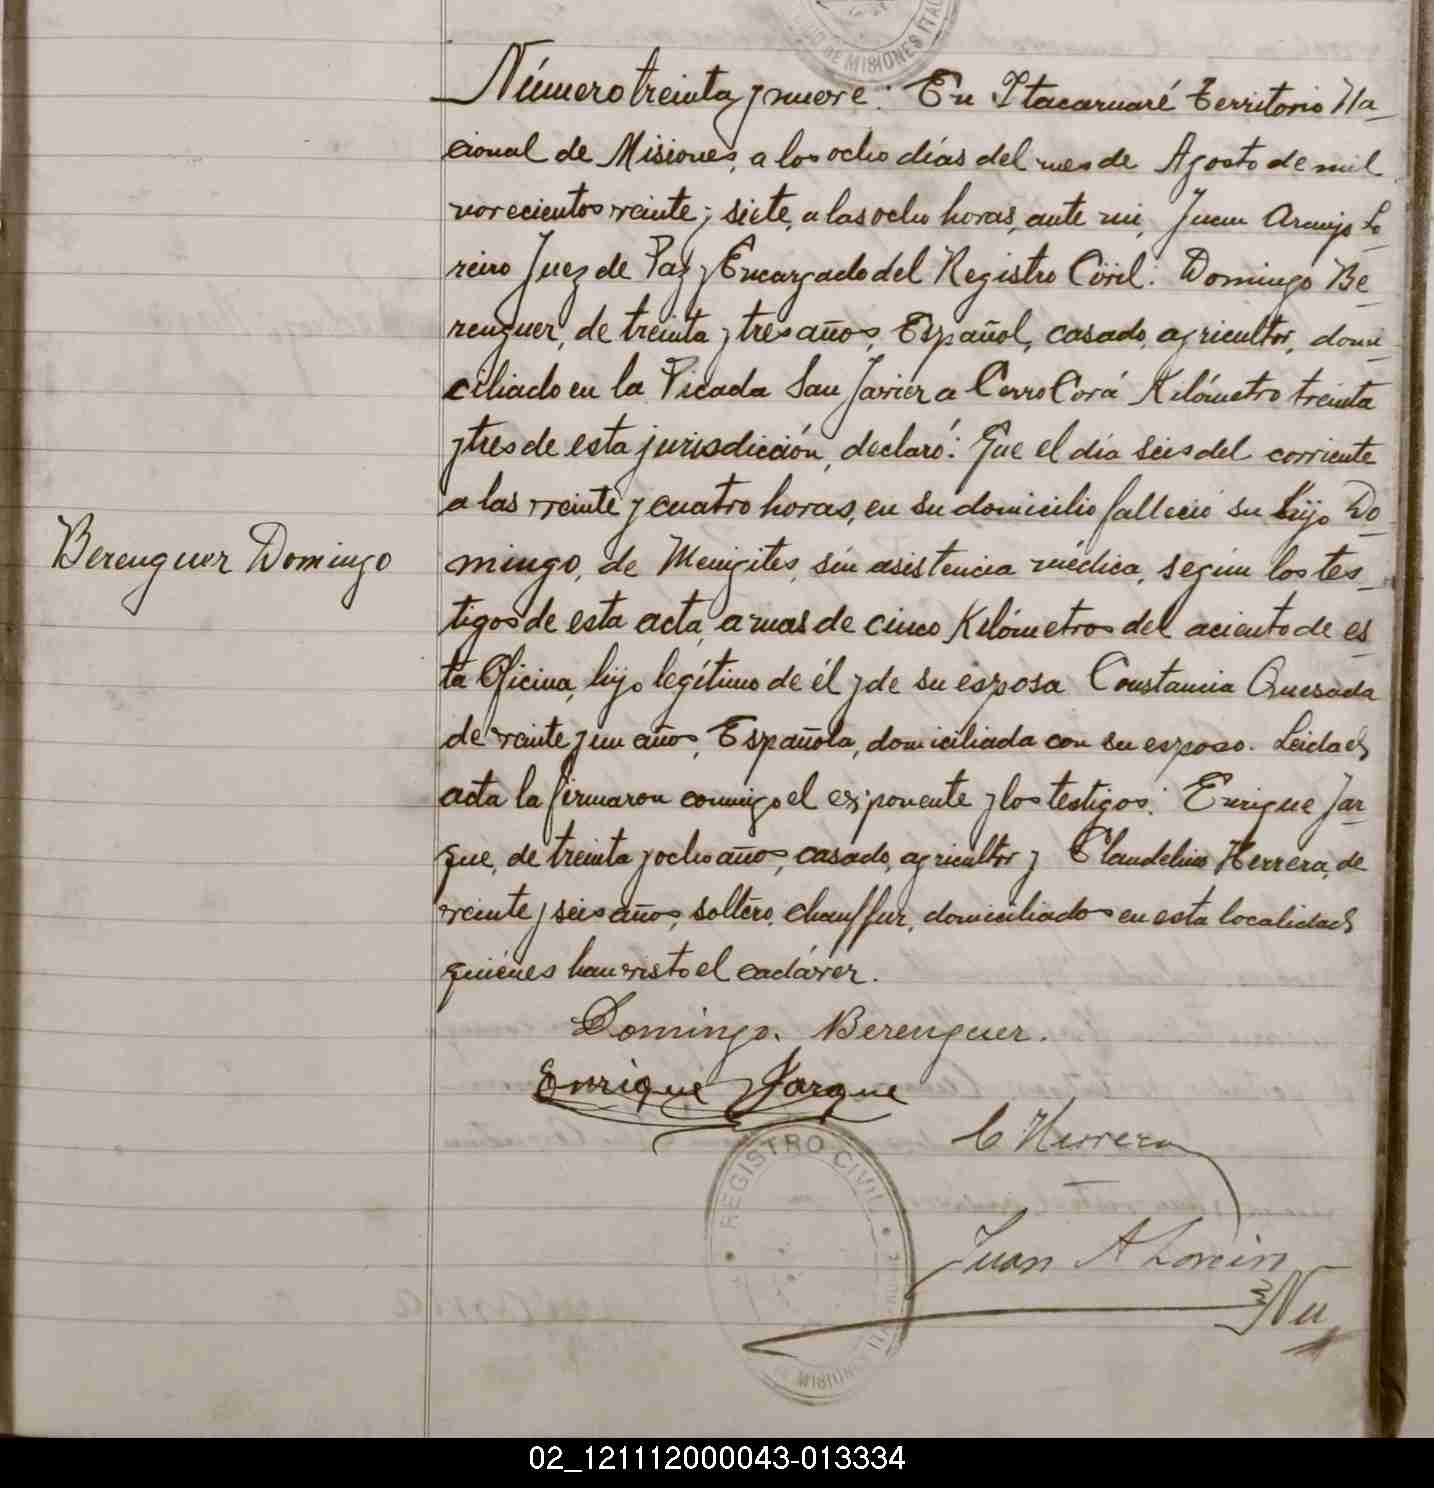 DE MISIONES ITAC
Número treinta y nueve: En Itacaruaré Territorio Na-
cional de Misiones, a los ocho días del mes de Agosto de mil
novecientos veinte y siete, a las ocho horas, ante mi, Juan Araujo Lo-
reiro Juez de Paz y Encargado del Registro Civil: Domingo Be-
renguer, de treinta y tres años, Español, casado, agricultor, domi-
ciliado en la Picada San Javier a Cerro Corá Kilómetro treinta
y tres de esta jurisdicción, declaró: Que el día seis del corriente
a las veinte y cuatro horas, en su domicilio falleció su hijo Do-
Berenguer Domingo
mingo, de Menigites, sin asistencia médica, según los tes-
tigos de esta acta, a mas de cinco Kilómetros del aciento de es-
ta Oficina, hijo legítimo de él y de su esposa Constancia Quesada
de veinte y un años, Española, domiciliada con su esposo. Leida el
acta la firmaron conmigo el exponente y los testigos: Enrique Jar-
que, de treinta y ocho años, casado, agricultor y Claudelino Herrera, de
veinte y seis años, soltero, chauffur, domiciliados en esta localidad
quiénes han visto el cadáver.
Domingo. Berenguer.
Enrique Jarque
C Herrera
REGISTRO CIVIL
Juan A Loreiro
Nu
MISIONES
02_121112000043-013334